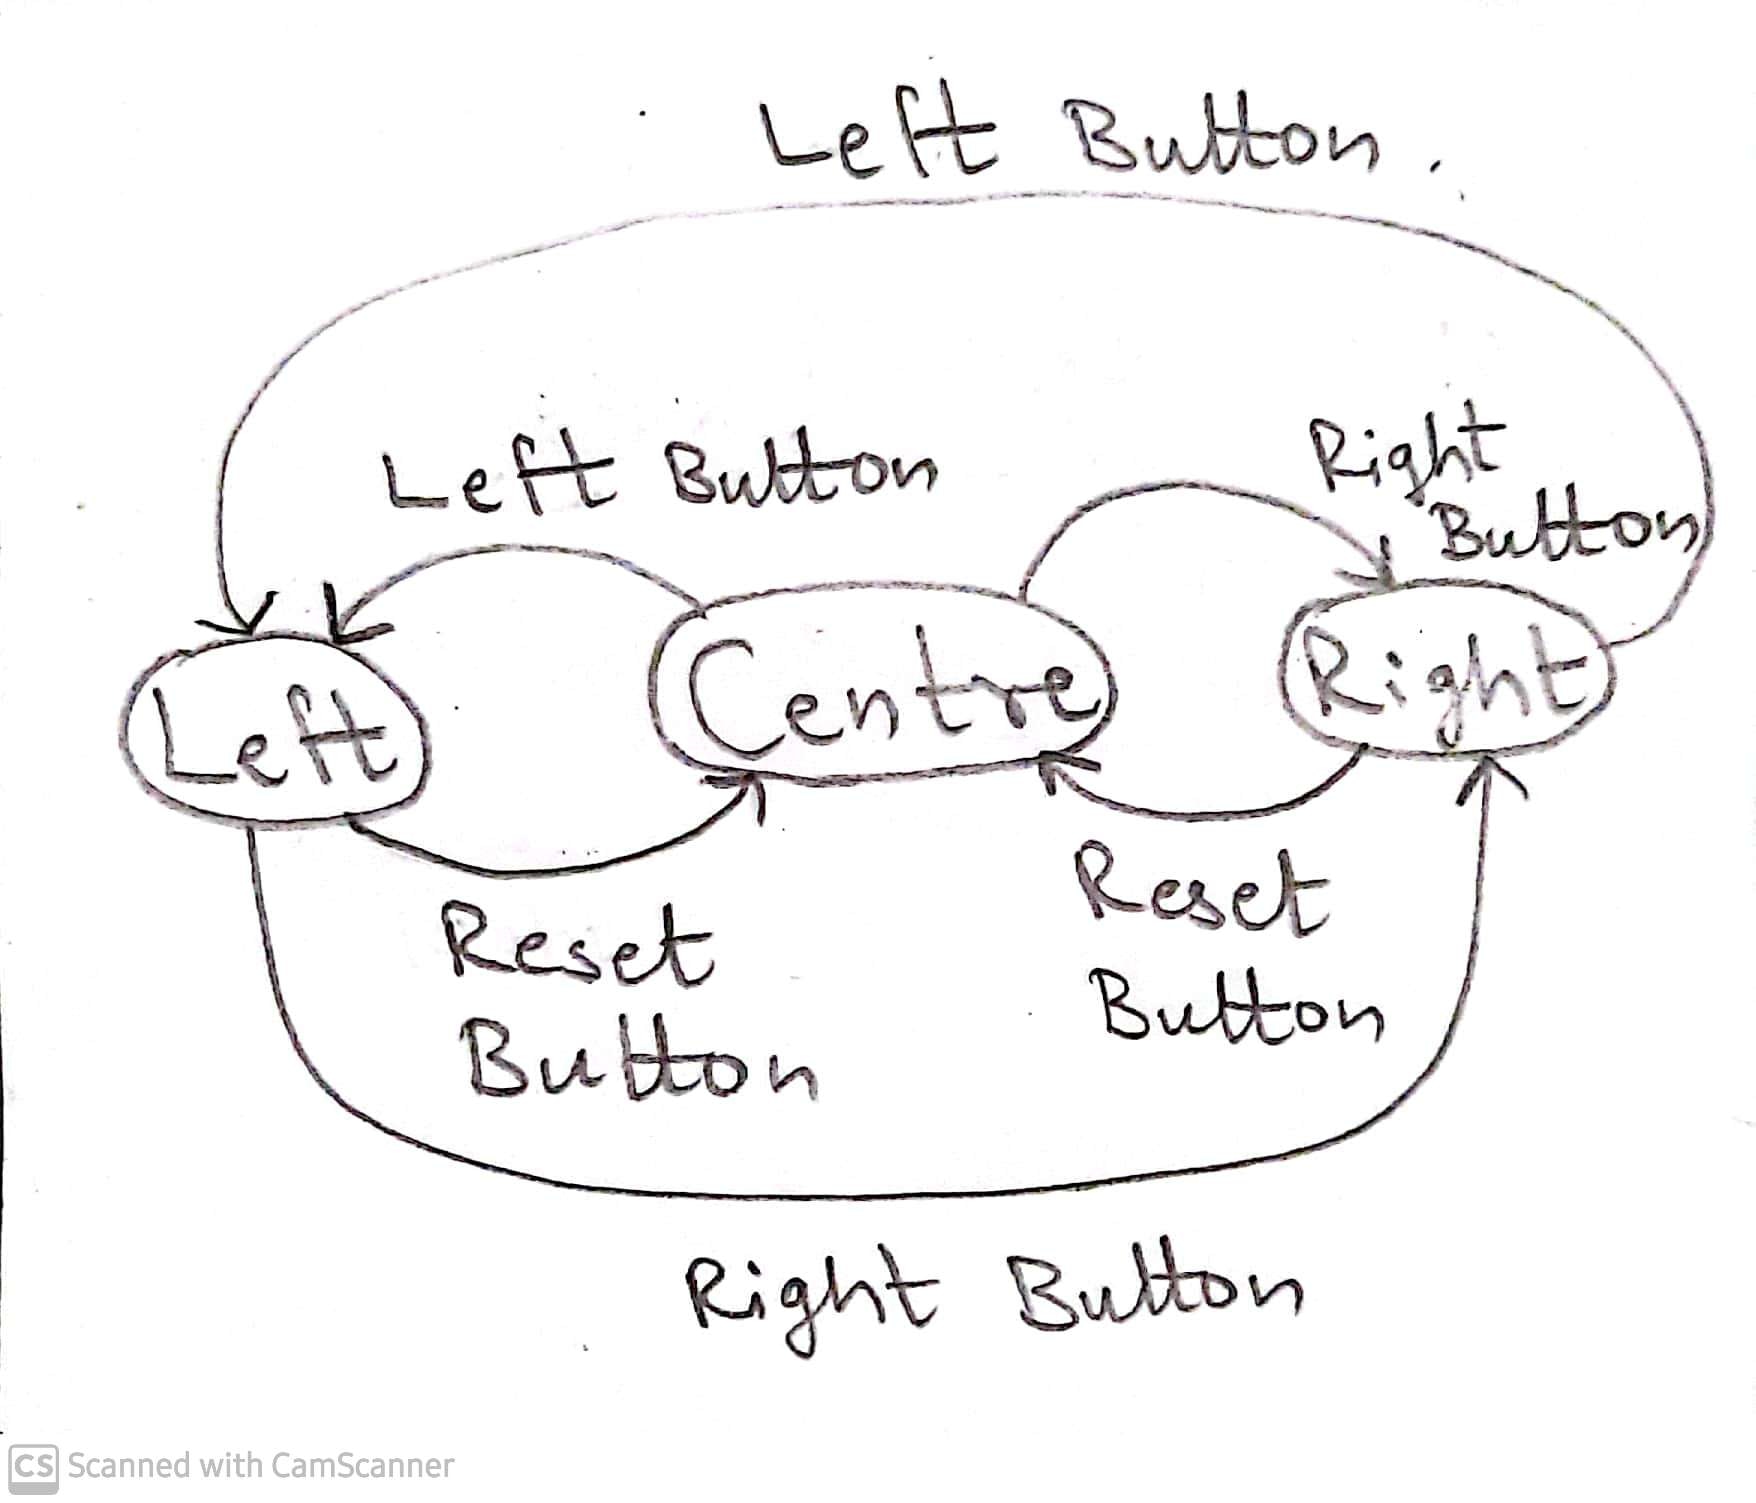 Left Button.
Left Button
Right
Button
Left
Centre
Right
Reset
Button
Reset
Button
Right Button
CS Scanned with CamScanner